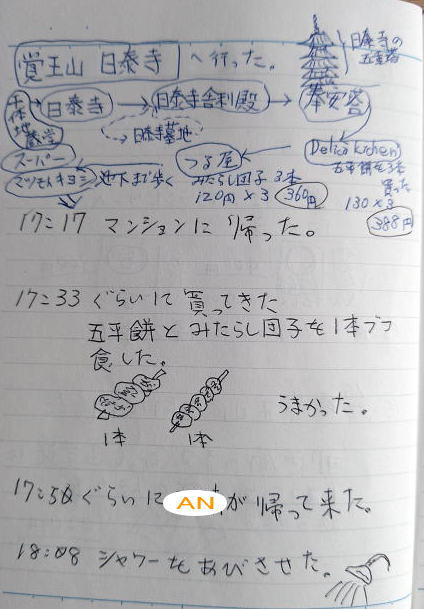 覚王山 日泰寺 へ行った。
日泰寺の
五重塔
千体地蔵堂
日泰寺 → 日泰寺舎利殿 → 奉安塔
日泰寺墓地
Delica Kitchen
五平餅を3本
買った
130×3
388円
つる屋
みたらし団子 3本
120円×3 360円
スーパー
マツモトキヨシ
地下まで歩く
17:17 マンションに帰った。
17:33 ぐらいに買ってきた
五平餅とみたらし団子を1本づつ
食した。
1本 1本
うまかった。
17:50 ぐらいに AN が帰って来た。
18:08 シャワーをあびさせた。